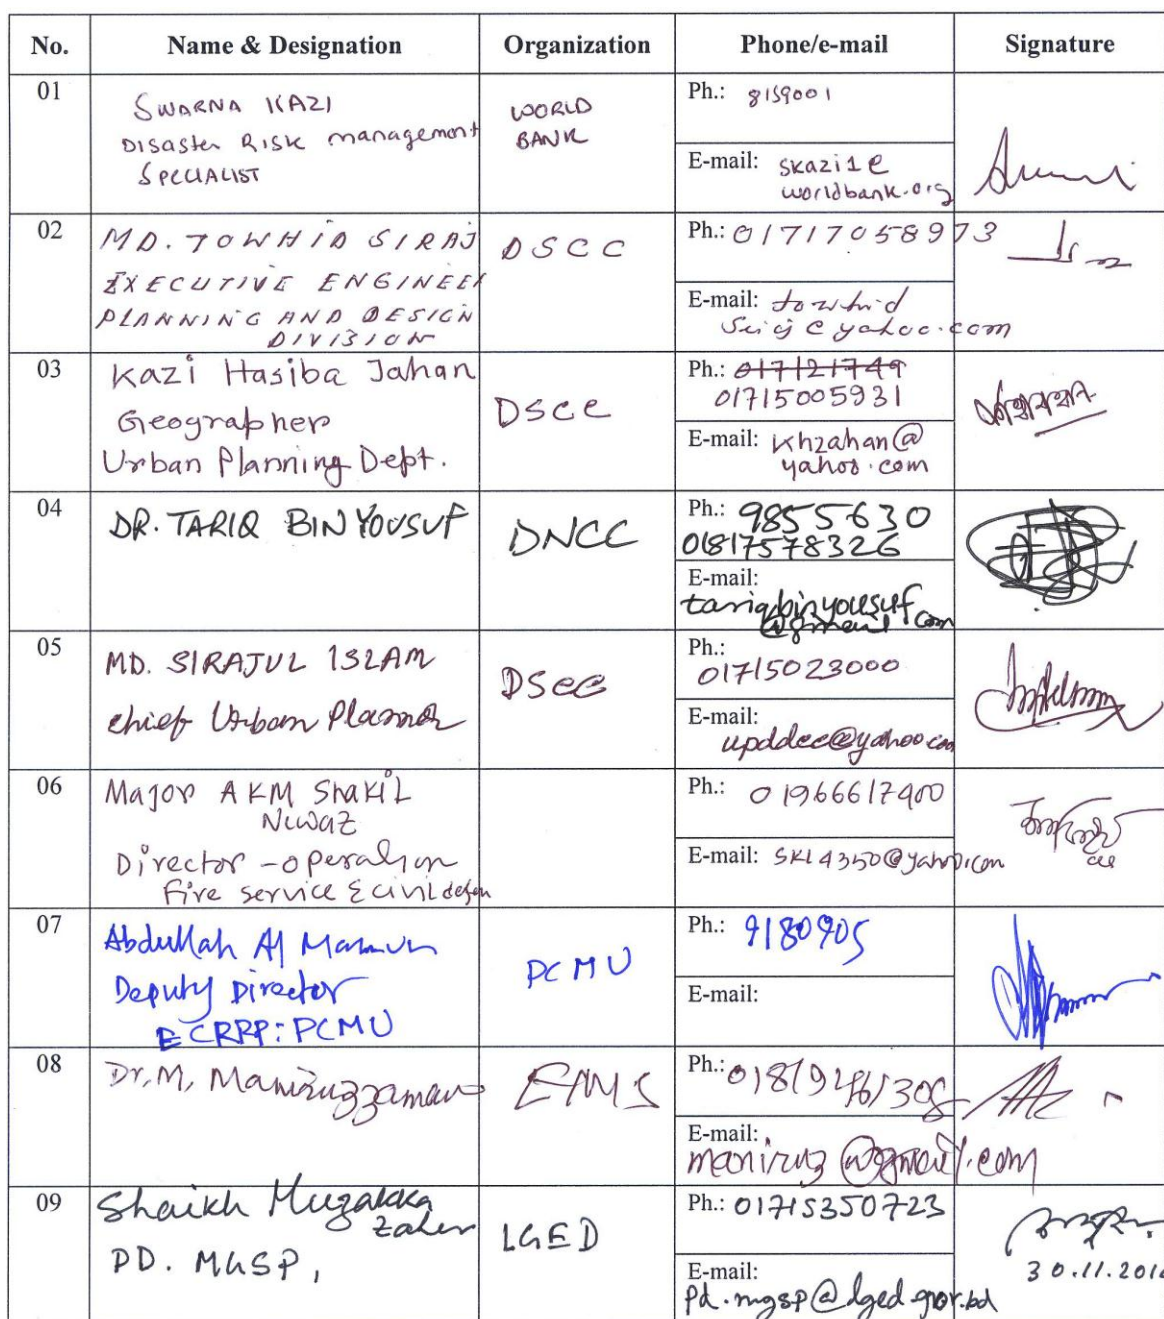 No. Name & Designation Organization Phone/e-mail Signature
01
SWARNA KAZI
DISASTER RISK management
SPECIALIST
WORLD
BANK
Ph.: 8159001
E-mail: skazi1@
worldbank.org
02
MD. TOWHID SIRAJ
EXECUTIVE ENGINEER
PLANNING AND DESIGN
DIVISION
DSCC
Ph.: 01717058973
E-mail: towhid
siraj@yahoo.com
03
Kazi Hasiba Jahan
Geographer
Urban Planning Dept.
DSCC
Ph.:
01715005931
E-mail: khzahan@
yahoo.com
04
DR. TARIQ BIN YOUSUF
DNCC
Ph.: 9855630
01817578326
E-mail:
tariqbinyousuf
@gmail.com
05
MD. SIRAJUL ISLAM
Chief Urban Planner
DSCC
Ph.:
01715023000
E-mail:
upddcc@yahoo.com
06
Major AKM Shakil
Newaz
Director - operation
Fire service & civil defen
Ph.: 01966617400
E-mail: SKL4350@yahoo.com
07
Abdullah Al Mamun
Deputy Director
ECRRP: PCMU
PCMU
Ph.: 9180905
E-mail:
08
Dr. M. Maniruzzaman
Ph.:
E-mail:
maniruz@gmail.com
09
Shaikh Muzakka
Zaher
PD. MGSP,
LGED
Ph.: 01715350723
E-mail:
pd.mgsp@lged.gov.bd